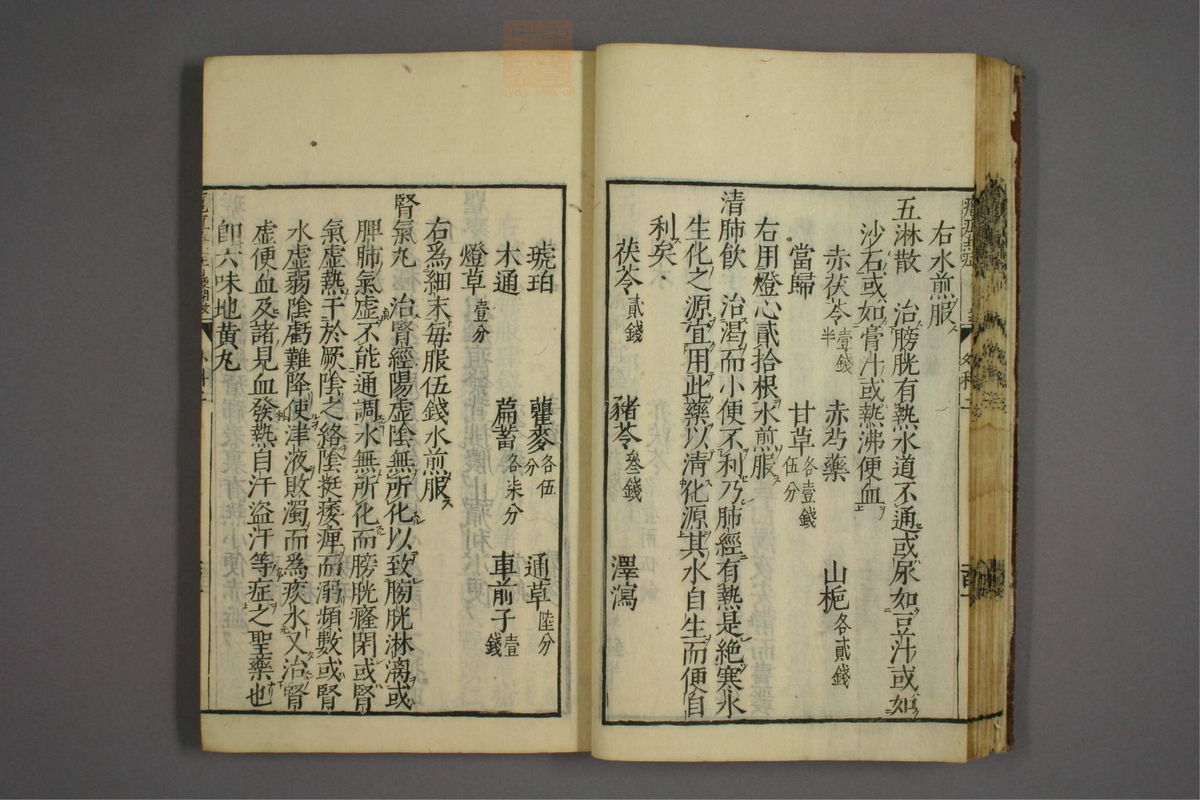 右水煎服
五淋散　治膀胱有熱水道不通或尿如豆汁或如
沙石或如膏汁或熱沸便血
赤茯苓壹錢半　赤芍藥　山梔各貳錢
當歸　甘草各壹錢伍分
右用燈心貳拾根水煎服
清肺飲　治渴而小便不利乃肺經有熱是絶寒水
生化之源宜用此藥以淸化源其水自生而便自
利矣
茯苓貳錢　豬苓叄錢　澤瀉
琥珀　瞿麥各伍分　通草陸分
木通　萹蓄各柒分　車前子壹錢
燈草壹分
右爲細末每服伍錢水煎服
腎氣丸　治腎經陽虛陰無所化以致膀胱淋漓或
脾肺氣虛不能通調水無所化而膀胱癃閉或腎
氣虛熱干於厥陰之絡陰挺痿痺而溺頻數或腎
水虛弱陰虧難降使津液敗濁而為痰水又治腎
虛便血及諸見血發熱自汗盜汗等症之聖藥也
卽六味地黃丸